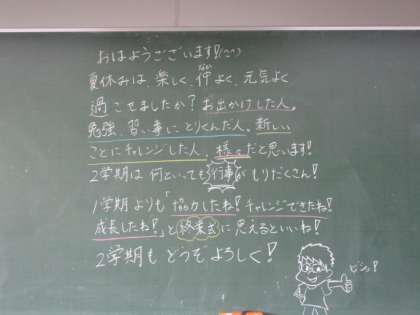 おはようございます!!(^^)
夏休みは、楽しく、仲よく、元気よく
過ごせましたか?お出かけした人。
勉強、習い事にとりくんだ人。新しい
ことにチャレンジした人、様々だと思います!
2学期は何といっても行事がもりだくさん!
1学期よりも「協力したね!チャレンジできたね!
成長したね!」と終業式に思えるといいね!
2学期もどうぞよろしく!